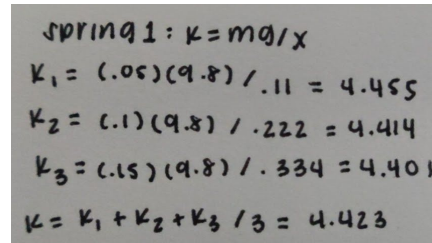 spring 1: K = mg/x
K₁ = (.05)(9.8) / .11 = 4.455
K₂ = (.1)(9.8) / .222 = 4.414
K₃ = (.15)(9.8) / .334 = 4.40
K = K₁ + K₂ + K₃ / 3 = 4.423